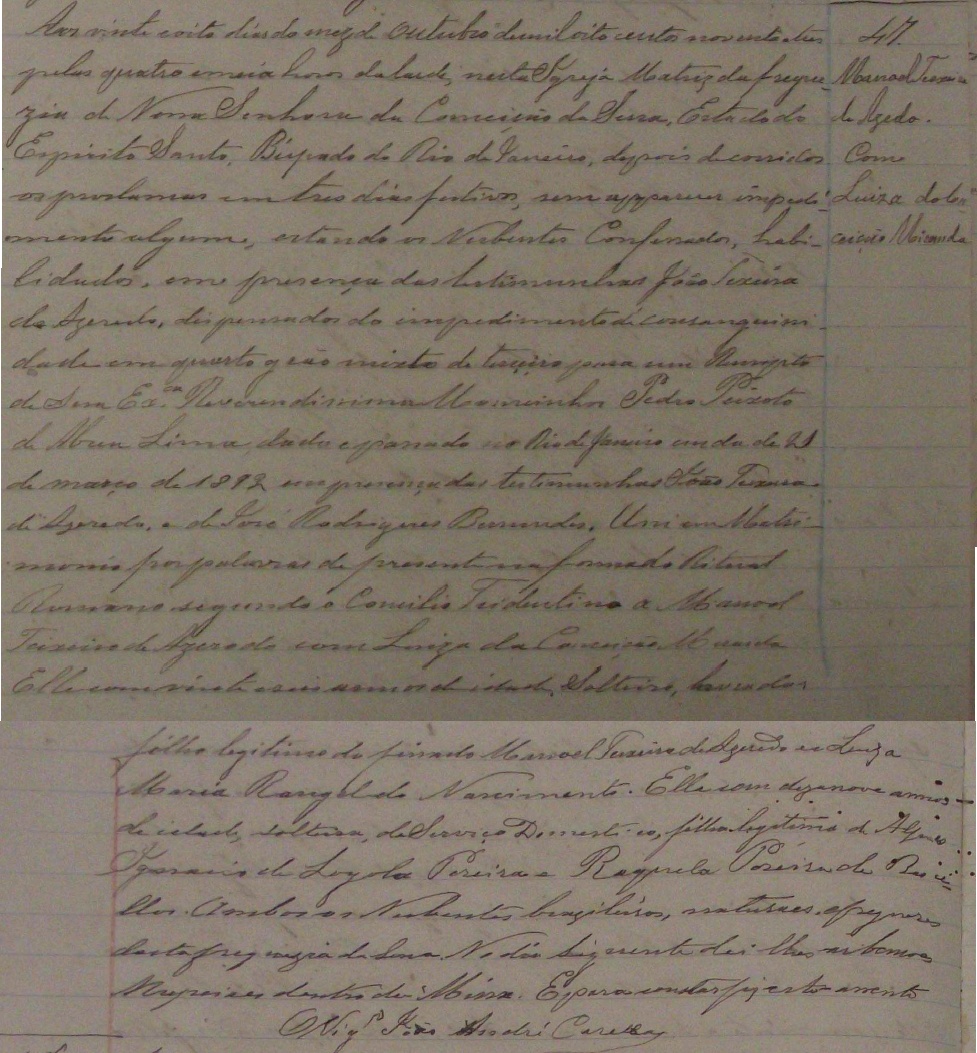 Aos vinte e oito dias do mez de Outubro de mil oito centos noventa e tres
pelas quatro e meia horas da tarde, nesta Igreja Matriz da fregue-
zia de Nossa Senhora da Conceição da Serra, Estado do
Espirito Santo, Bispado do Rio de Janeiro, depois de corridos
os proclamas em tres dias festivos, sem apparecer impedi-
mento algum, estando os Nubentes Confessados, habi-
litados, em presença das testimunhas João Teixeira
de Azeredo, dispensados do impedimento de consanguini-
dade em quarto grão mixto de terceiro para um
de Sua Ex.cia Reverendissima Mounsinhor Pedro Peixoto
de Abreu Lima, dado e passado no Rio de Janeiro em da de 21
de março de 1892 em presença das testimunhas João Teixeira
de Azeredo, e de José Rodrigues. Uni em Matri-
monio por palavras de presente na forma do Ritual
Romano segundo o Concilio Tridentino a Manoel
Teixeira de Azeredo com Luiza da Conceição Miranda
Elle com vinte e seis annos de idade, Solteiro, lavrador
47.
Manoel Teixeira
de Azedo.
Com
Luiza da Con-
ceição Miranda
filho legitimo do finado Manoel Teixeira de Azeredo e de Luiza
Maria Rangel do Nascimento. Ella com dezanove annos
de idade, solteira, de Serviço Domestico, filha legitima de
Ignacio de Loyola Pereira e Pereira de
Ambos os Nubentes brazileiros, naturaes e freguezes
desta freguezia da Serra. No dia seguente dei-lhes as bençoes
Nupciaes dentro da Missa. E para constar fiz este assento
O Vig.º João André